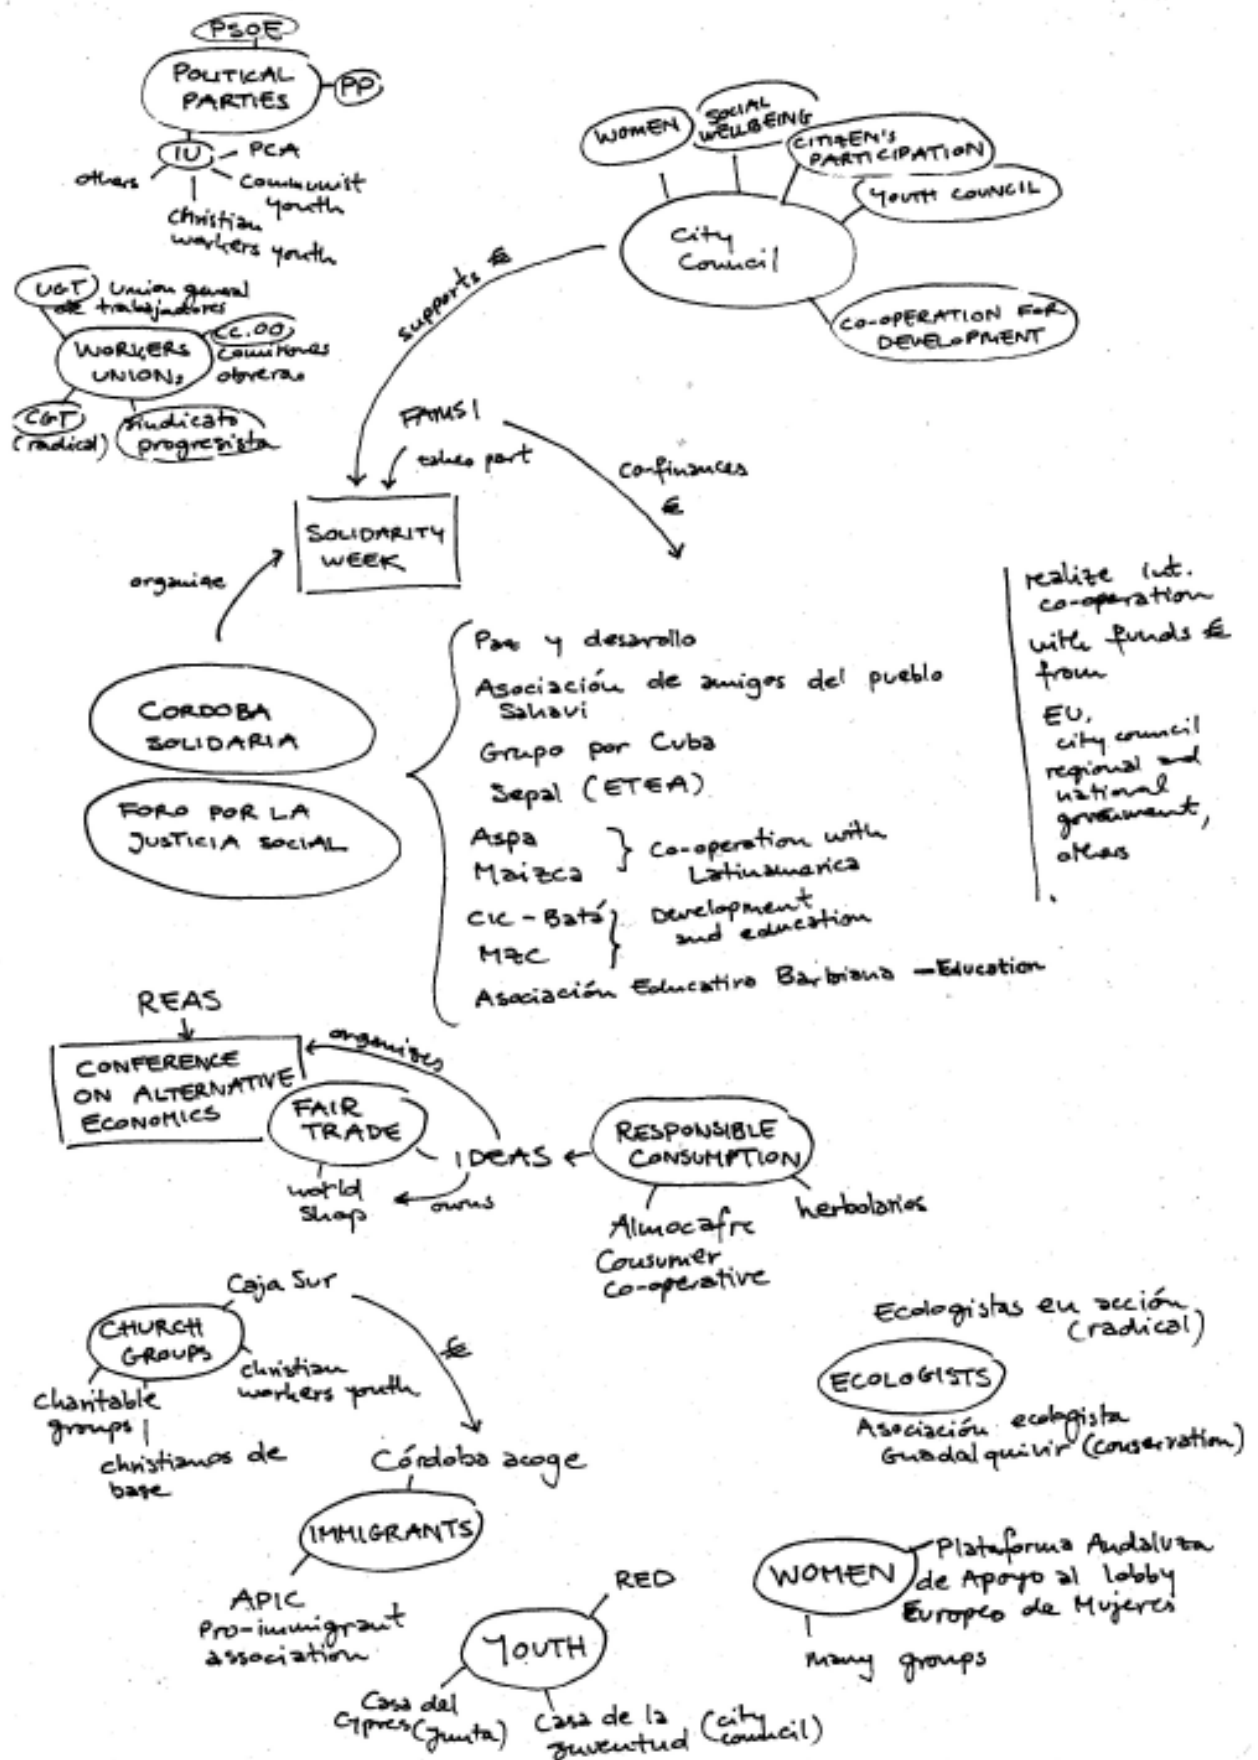 PSOE
POLITICAL
PARTIES
PP
IU
PCA
others
Communist
youth
Christian
workers youth
UGT
Union general
de trabajadores
WORKERS
UNIONS
CC.OO
Comisiones
obreras
CGT
(radical)
Sindicato
progresista
WOMEN
SOCIAL
WELLBEING
CITIZEN'S
PARTICIPATION
YOUTH COUNCIL
City
Council
CO-OPERATION FOR
DEVELOPMENT
supports €
FAMSI
takes part
co-finances
€
SOLIDARITY
WEEK
organize
CORDOBA
SOLIDARIA
FORO POR LA
JUSTICIA SOCIAL
Paz y desarollo
Asociación de amigos del pueblo
Sahavi
Grupo por Cuba
Sepal (ETEA)
Aspa
Maizca
Co-operation with
Latinamerica
CIC-Batá
MZC
Development
and education
Asociación Educativa Barbiana - Education
realize int.
co-operation
with funds €
from
EU,
city council
regional and
national
government,
others
REAS
CONFERENCE
ON ALTERNATIVE
ECONOMICS
organizes
FAIR
TRADE
IDEAS
RESPONSIBLE
CONSUMPTION
world
shop
owns
Almocafre
Consumer
co-operative
herbolarios
Caja Sur
CHURCH
GROUPS
€
christian
workers youth
charitable
groups
christianos de
base
Córdoba acoge
IMMIGRANTS
APIC
Pro-immigrant
association
Ecologistas en acción
(radical)
ECOLOGISTS
Asociación ecologista
Guadalquivir (conservation)
WOMEN
Plataforma Andaluza
de Apoyo al lobby
Europeo de Mujeres
many groups
RED
YOUTH
Casa del
Cypres (Junta)
Casa de la
juventud (city
council)